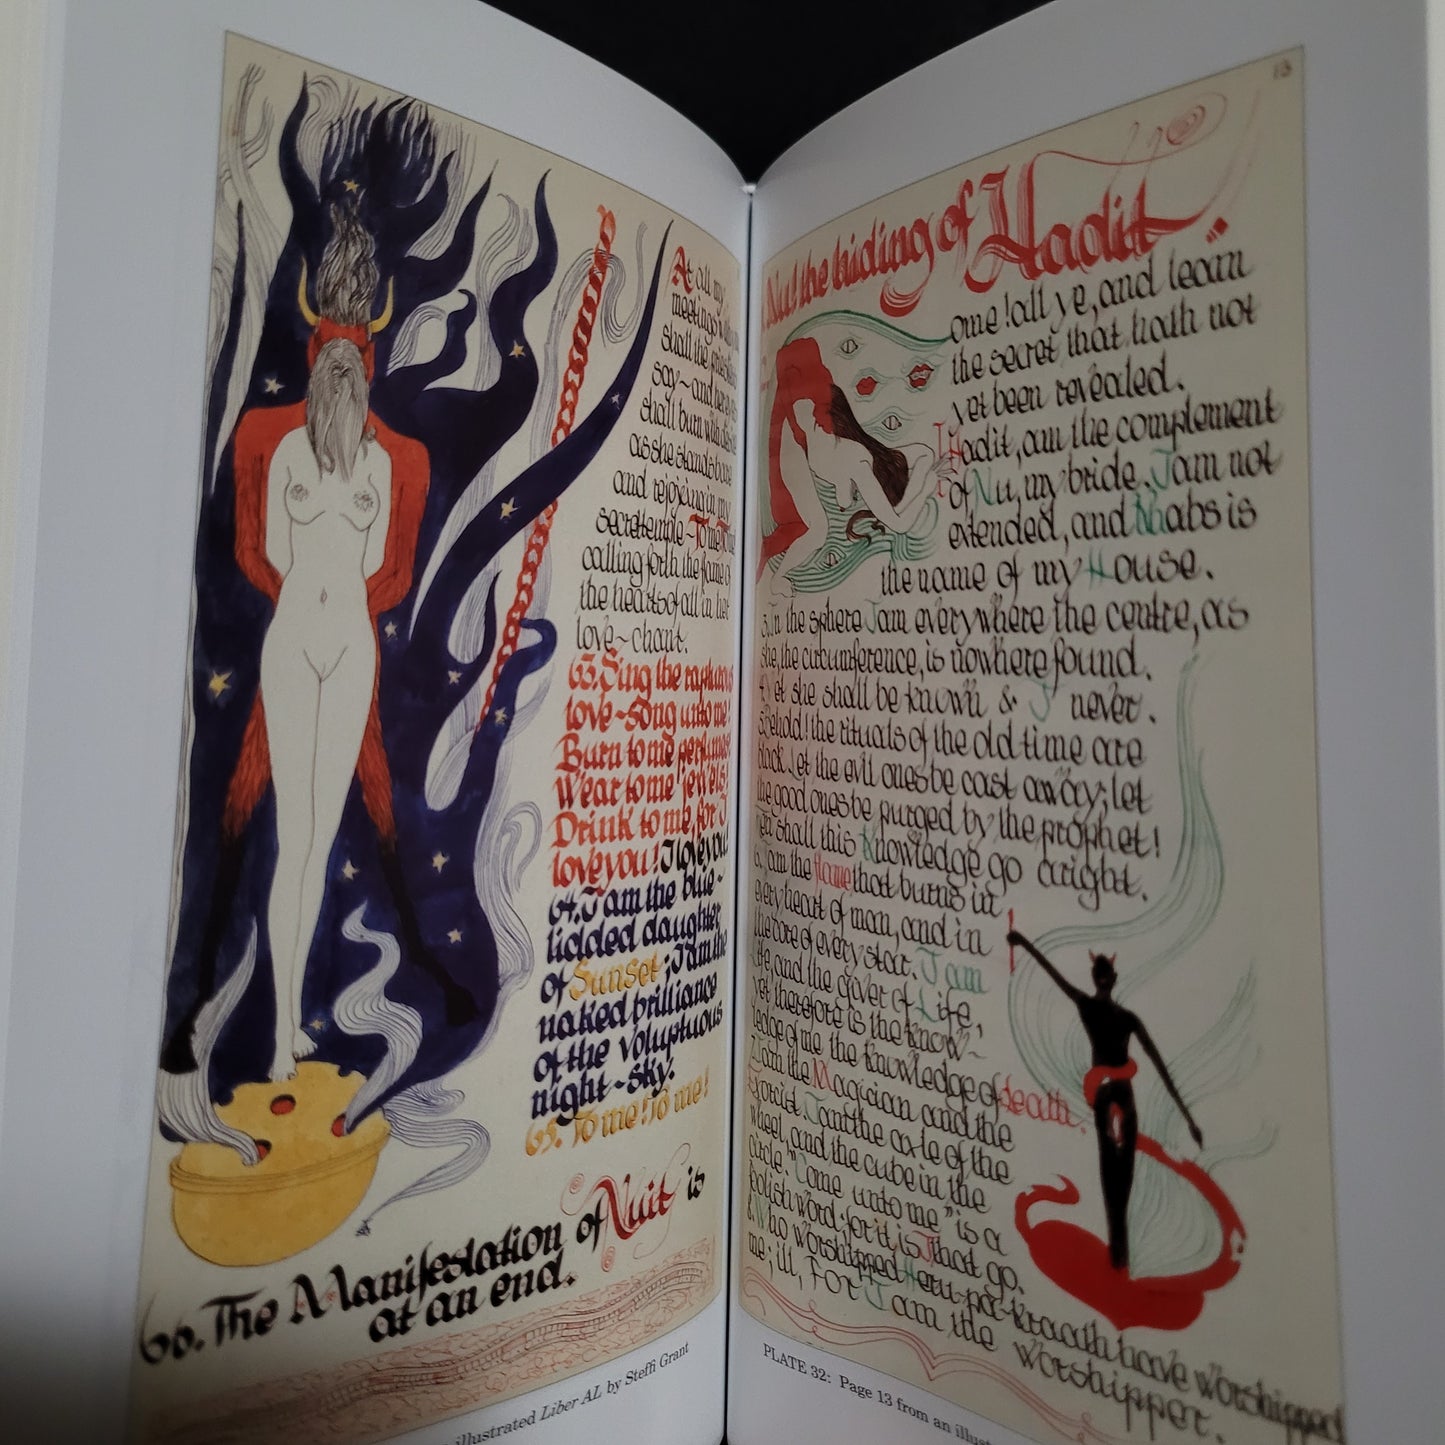 At all my
meetings
shall the
say~and her
shall burn with
as she stands bare
and rejoicing in my
secret temple~To me! To
calling forth the flame of
the hearts of all in her
love~chant.
63. Sing the rapturous
love~song unto me!
Burn to me perfumes!
Wear to me jewels!
Drink to me, for I
love you! I love you!
64. I am the blue~
lidded daughter
of Sunset; I am the
naked brilliance
of the voluptuous
night~sky.
65. To me! To me!
66. The Manifestation of Nuit is
at an end.
illustrated Liber AL by Steffi Grant
13
Nu! the hiding of Hadit.
ome! all ye, and learn
the secret that hath not
yet been revealed.
I Hadit, am the complement
of Nu, my bride. I am not
extended, and Khabs is
the name of my House.
3. In the sphere I am everywhere the centre, as
she, the circumference, is nowhere found.
4. Yet she shall be known & I never.
5. Behold! the rituals of the old time are
black. Let the evil ones be cast away; let
the good ones be purged by the prophet!
Then shall this Knowledge go aright.
6. I am the flame that burns in
every heart of man, and in
the core of every star. I am
Life, and the giver of Life,
yet therefore is the know~
ledge of me the knowledge of death.
7. I am the Magician and the
Exorcist. I am the axle of the
wheel, and the cube in the
circle. "Come unto me" is a
foolish word; for it is I that go.
8. Who worshipped Heru-pa-kraath have worshipped
me; ill, For I am the worshipper.
PLATE 32: Page 13 from an